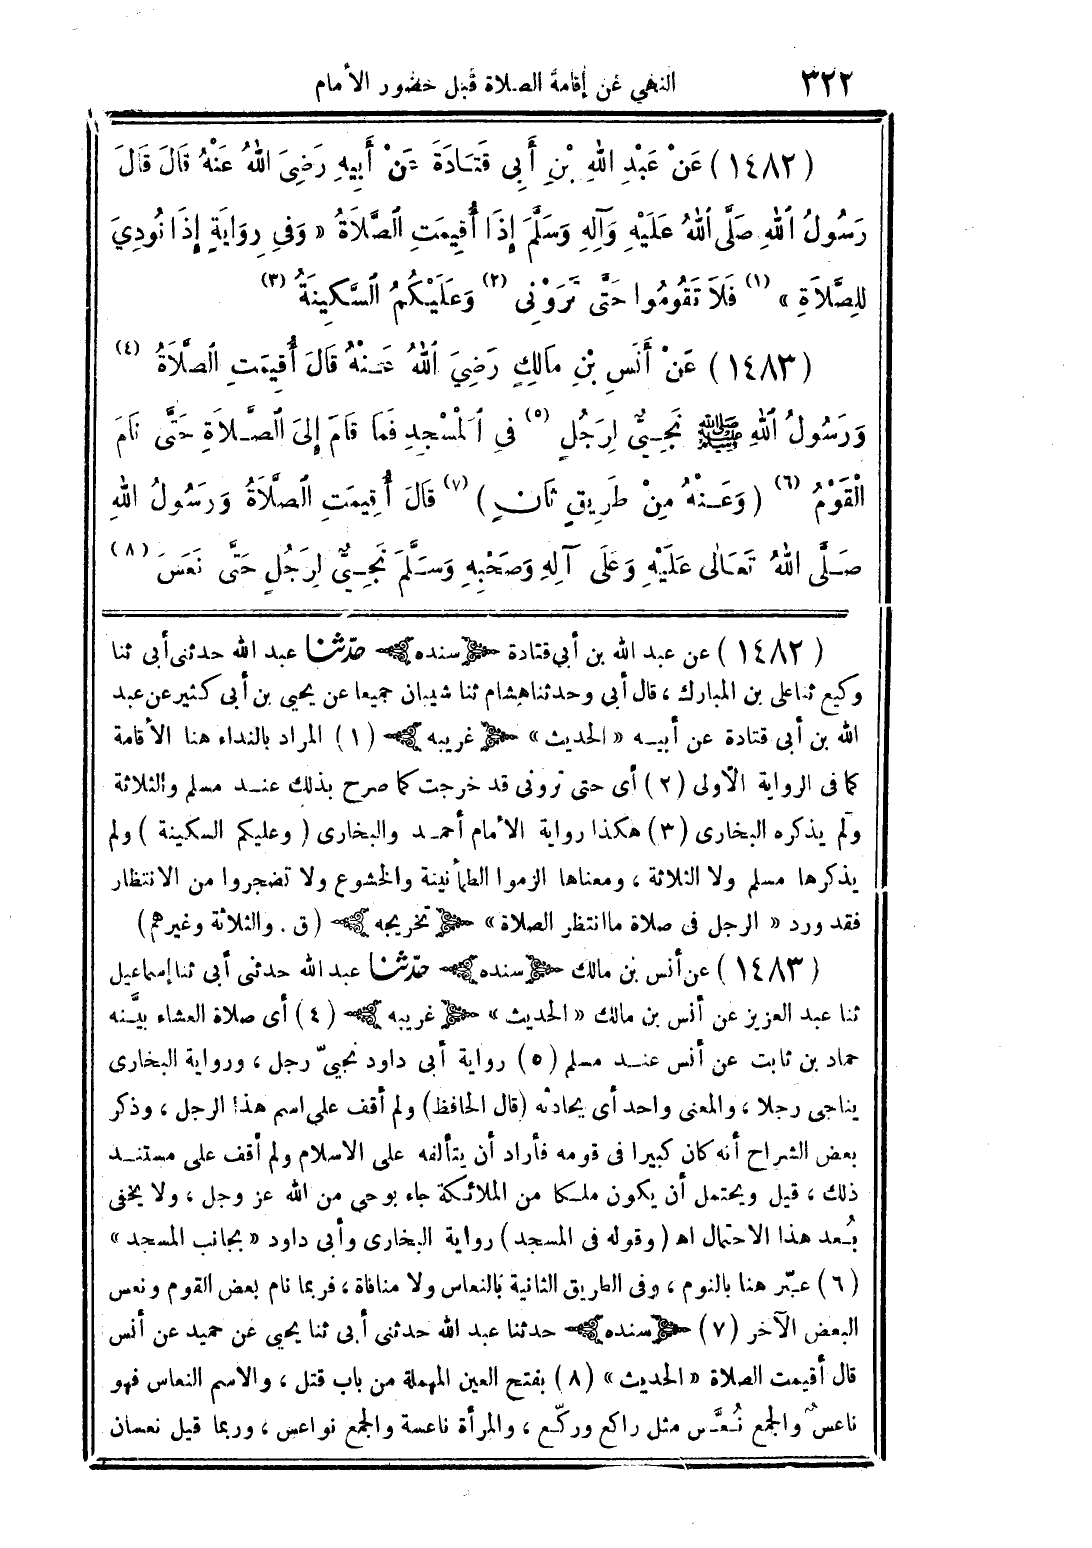 ٣٢٢ النهي عن إقامة الصلاة قبل حضور الأمام
(١٤٨٢) عَنْ عَبْدِ اللهِ بْنِ أَبِي قَتَادَةَ عَنْ أَبِيهِ رَضِىَ اللهُ عَنْهُ قَالَ قَالَ
رَسُولُ اللهِ صَلَّى اللهُ عَلَيْهِ وَآلِهِ وَسَلَّمَ إِذَا أُقِيمَتِ الصَّلَاةُ « وَفِي رِوَايَةٍ إِذَا نُودِيَ
لِلصَّلَاةِ » (١) فَلَا تَقُومُوا حَتَّى تَرَوْنِى (٢) وَعَلَيْكُمُ السَّكِينَةُ (٣)
(١٤٨٣) عَنْ أَنَسِ بْنِ مَالِكٍ رَضِيَ اللهُ عَنْهُ قَالَ أُقِيمَتِ الصَّلَاةُ (٤)
وَرَسُولُ اللهِ ﷺ نَجِيٌّ لِرَجُلٍ (٥) فِي الْمَسْجِدِ فَمَا قَامَ إِلَى الصَّلَاةِ حَتَّى نَامَ
الْقَوْمُ (٦) (وَعَنْهُ مِنْ طَرِيقٍ ثَانٍ) (٧) قَالَ أُقِيمَتِ الصَّلَاةُ وَرَسُولُ اللهِ
صَلَّى اللهُ تَعَالَى عَلَيْهِ وَعَلَى آلِهِ وَصَحْبِهِ وَسَلَّمَ نَجِيٌّ لِرَجُلٍ حَتَّى نَعَسَ (٨)
(١٤٨٢) عن عبد الله بن أبي قتادة سنده حدّثنا عبد الله حدثنى أبى ثنا
وكيع ثنا على بن المبارك ، قال أبى وحدثنا هشام ثنا شيبان جميعا عن يحيى بن أبى كثير عن عبد
الله بن أبى قتادة عن أبيه «الحديث» غريبه (١) المراد بالنداء هنا الأقامة
كما فى الرواية الأولى (٢) أى حتى ترونى قد خرجت كما صرح بذلك عند مسلم والثلاثة
ولم يذكره البخارى (٣) هكذا رواية الأمام أحمد والبخارى (وعليكم السكينة) ولم
يذكرها مسلم ولا الثلاثة ، ومعناها الزموا الطمأنينة والخشوع ولا تضجروا من الانتظار
فقد ورد « الرجل فى صلاة ما انتظر الصلاة» تخريجه (ق . والثلاثة وغيرهم)
(١٤٨٣) عن أنس بن مالك سنده حدّثنا عبد الله حدثنى أبى ثنا إسماعيل
ثنا عبد العزيز عن أنس بن مالك «الحديث» غريبه (٤) أى صلاة العشاء بيَّنه
حماد بن ثابت عن أنس عند مسلم (٥) رواية أبى داود نجيّ رجل ، ورواية البخارى
يناجى رجلا ، والمعنى واحد أى يحادثه (قال الحافظ) ولم أقف على اسم هذا الرجل ، وذكر
بعض الشراح أنه كان كبيرا فى قومه فأراد أن يتألفه على الاسلام ولم أقف على مستند
ذلك ، قيل ويحتمل أن يكون ملكا من الملائكة جاء بوحى من الله عز وجل ، ولا يخفى
بُعد هذا الاحتمال اه (وقوله فى المسجد) رواية البخارى وأبى داود «بجانب المسجد»
(٦) عبّر هنا بالنوم ، وفى الطريق الثانية بالنعاس ولا منافاة ، فربما نام بعض القوم ونعس
البعض الآخر (٧) سنده حدثنا عبد الله حدثنى أبى ثنا يحيى عن حميد عن أنس
قال أقيمت الصلاة «الحديث» (٨) بفتح العين المهملة من باب قتل ، والاسم النعاس فهو
ناعسٌ والجمع نُعَّس مثل راكع وركّع ، والمرأة ناعسة والجمع نواعس ، وربما قيل نعسان